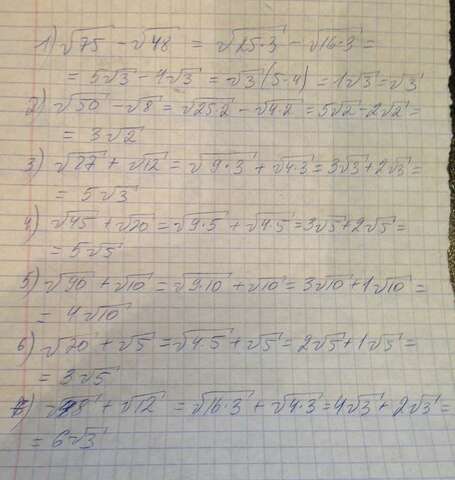 1) √75 - √48 = √25·3 - √16·3 =
= 5√3 - 4√3 = √3(5-4) = 1√3 = √3
2) √50 - √8 = √25·2 - √4·2 = 5√2 - 2√2 =
= 3√2
3) √27 + √12 = √9·3 + √4·3 = 3√3 + 2√3 =
= 5√3
4) √45 + √20 = √9·5 + √4·5 = 3√5 + 2√5 =
= 5√5
5) √90 + √10 = √9·10 + √10 = 3√10 + 1√10 =
= 4√10
6) √20 + √5 = √4·5 + √5 = 2√5 + 1√5 =
= 3√5
√48 + √12 = √16·3 + √4·3 = 4√3 + 2√3 =
= 6√3